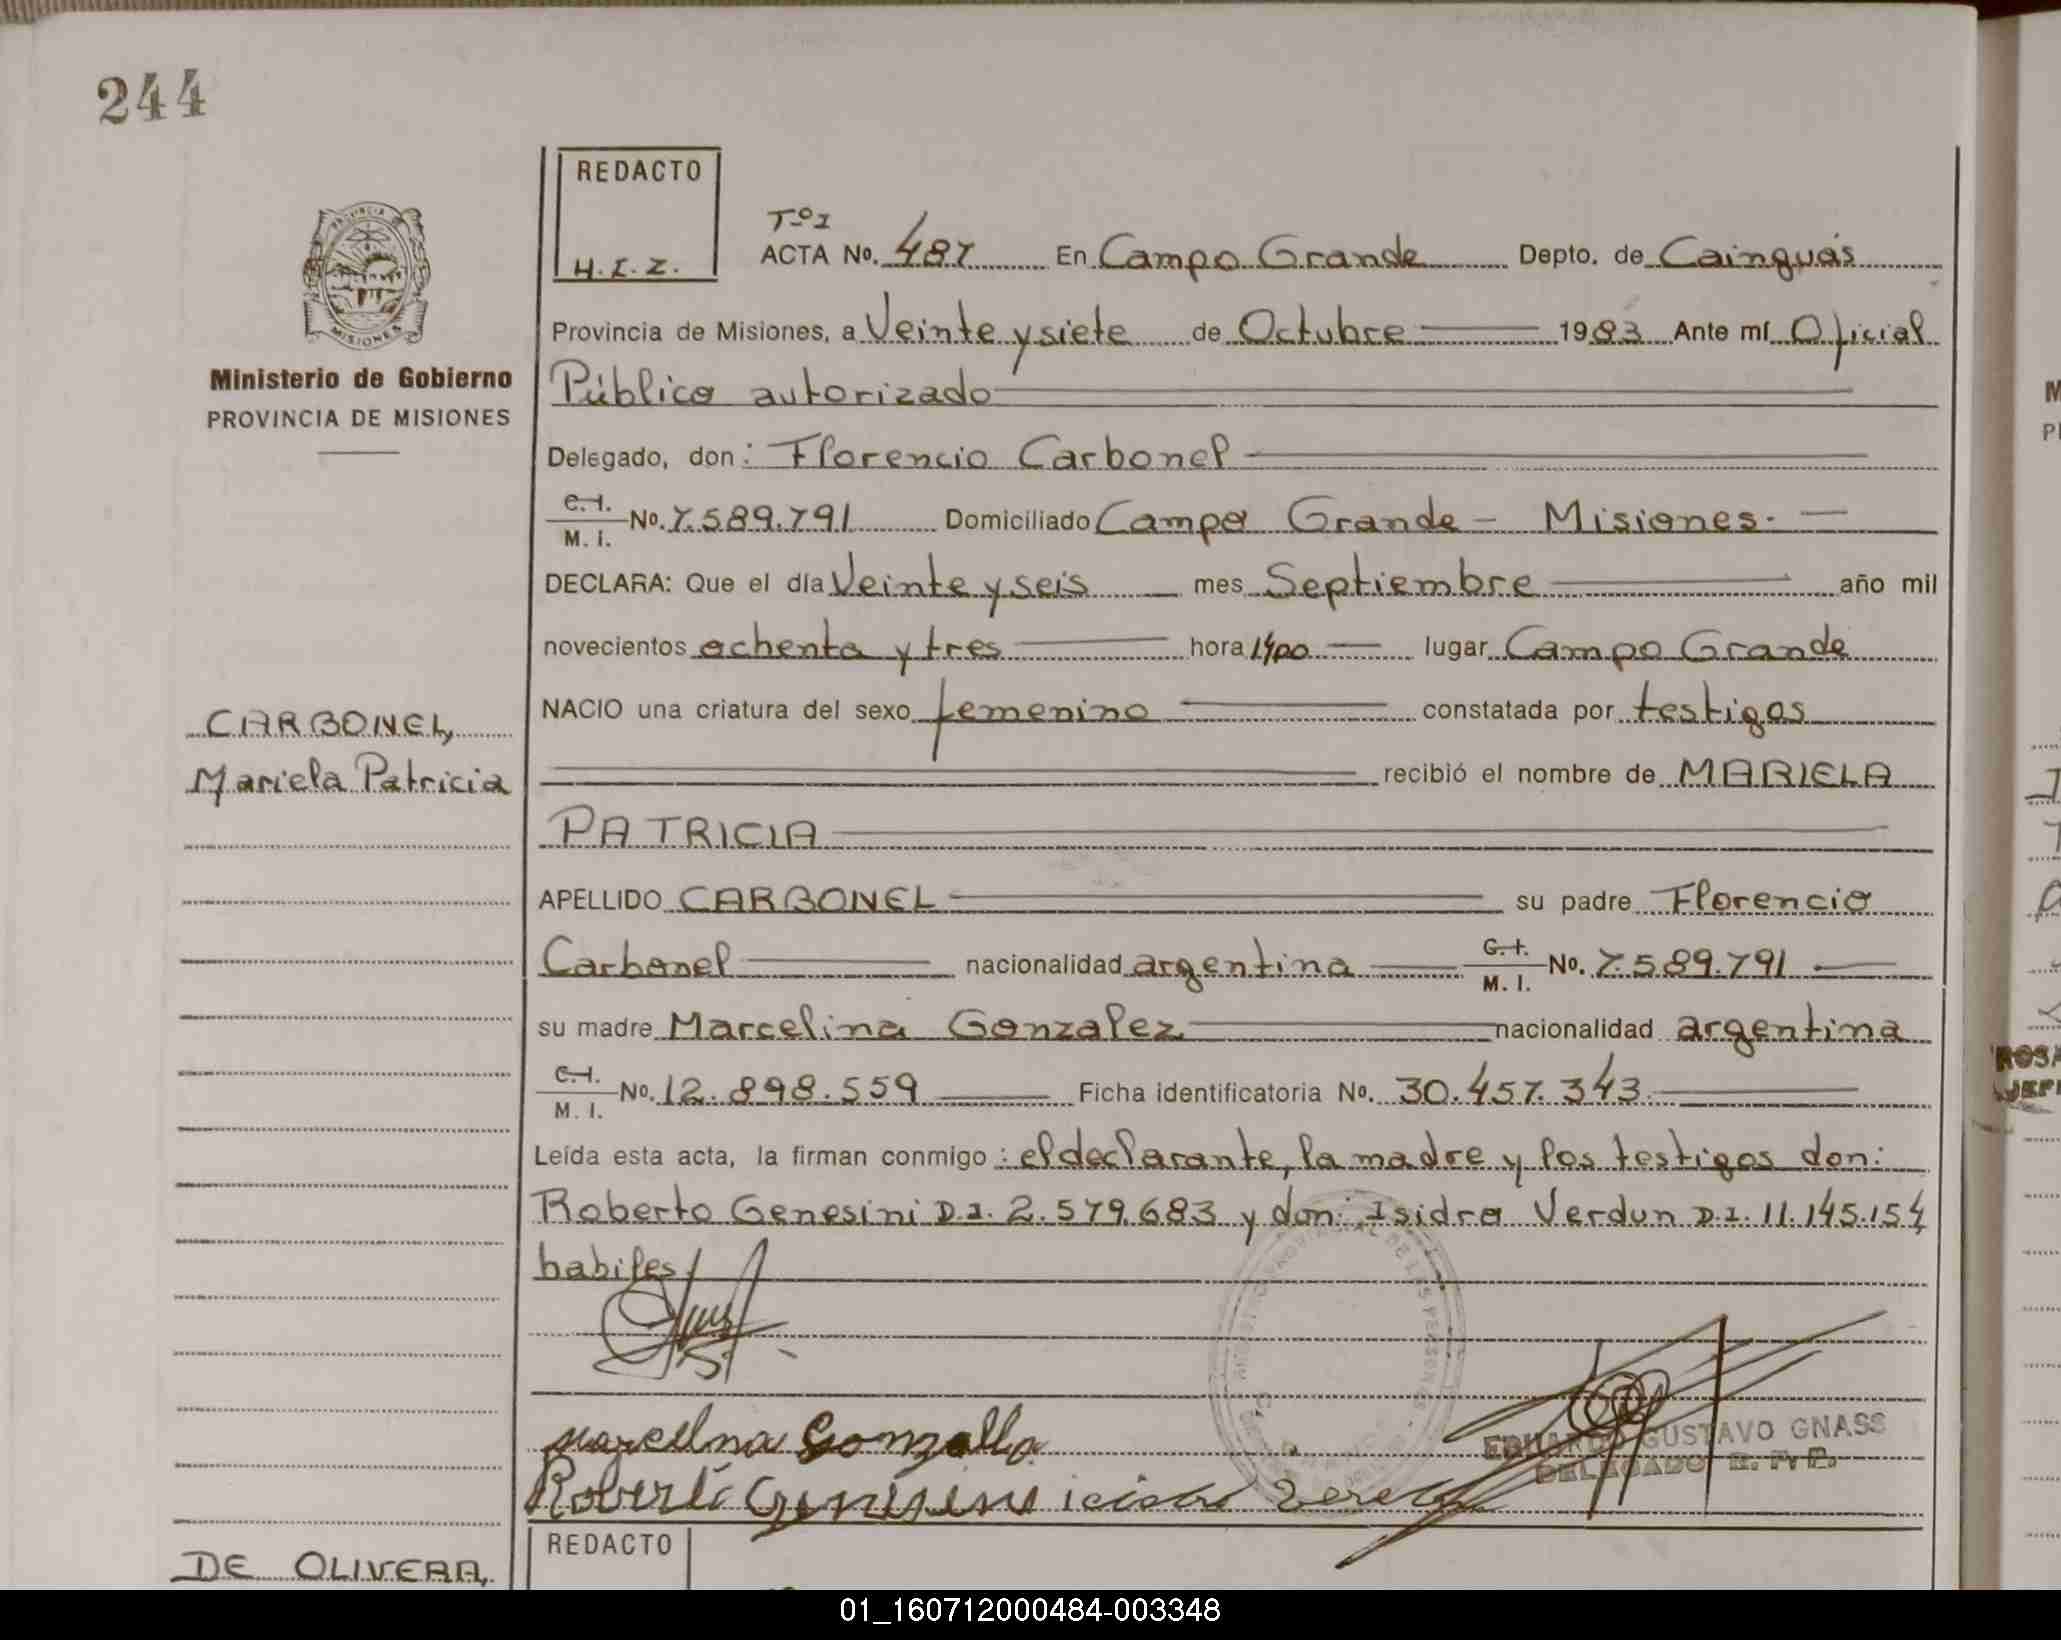 244
REDACTO
H.I.Z.
Tº I
ACTA No. 487 En Campo Grande Depto. de Cainguás
Provincia de Misiones, a Veinte y siete de Octubre 1983 Ante mí Oficial
Público autorizado
Delegado, don: Florencio Carbonel
C.I. M. I. No. 7.589.791 Domiciliado Campo Grande - Misiones.
DECLARA: Que el día Veinte y seis mes Septiembre año mil
novecientos ochenta y tres hora 1400 lugar Campo Grande
NACIO una criatura del sexo femenino constatada por testigos
recibió el nombre de MARIELA
PATRICIA
APELLIDO CARBONEL su padre Florencio
Carbonel nacionalidad argentina C.I. M. I. No. 7.589.791
su madre Marcelina Gonzalez nacionalidad argentina
C.I. M. I. No. 12.898.559 Ficha identificatoria No. 30.457.343
Leída esta acta, la firman conmigo: el declarante, la madre y los testigos don:
Roberto Genesini D.I. 2.579.683 y don: Isidro Verdun D.I. 11.145.154
habiles
EDUARDO GUSTAVO GNASS
DELEGADO R. P. P.
Roberto Genesini
REDACTO
PROVINCIA DE
MISIONES
Ministerio de Gobierno
PROVINCIA DE MISIONES
CARBONEL,
Mariela Patricia
DE OLIVERA,
01_160712000484-003348